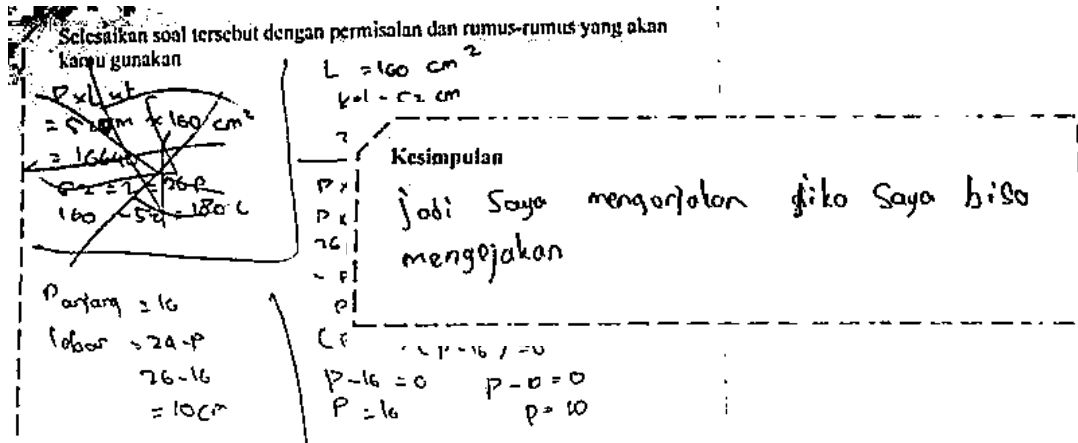 Selesaikan soal tersebut dengan permisalan dan rumus-rumus yang akan
kamu gunakan
P x L x t
= 52 cm x 160 cm²
= 1664
52 = 2 = 26 p
160 - 52 = 180 L
L = 160 cm²
kel = 52 cm
2
P x
P x
26
- p
P
Kesimpulan
jadi saya mengerjakan jika saya bisa
mengejakan
(P-16) = 0
P-16 = 0 P-10 = 0
P = 16 P = 10
Panjang = 16
lebar = 24-P
26-16
= 10 cm